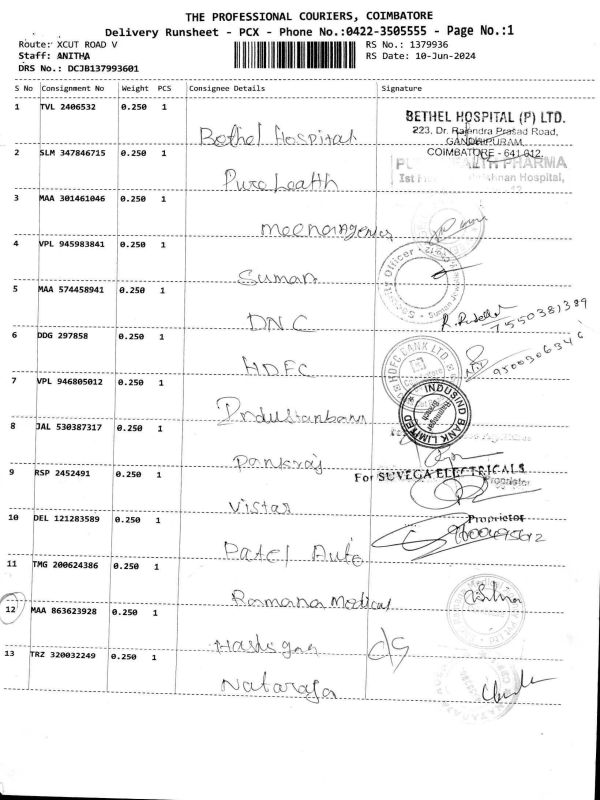 THE PROFESSIONAL COURIERS, COIMBATORE
Delivery Runsheet - PCX - Phone No.:0422-3505555 - Page No.:1
Route: XCUT ROAD V RS No.: 1379936
Staff: ANITHA RS Date: 10-Jun-2024
DRS No.: DCJB137993601
S No Consignment No Weight PCS Consignee Details Signature
1 TVL 2406532 0.250 1 Bethel Hospital
BETHEL HOSPITAL (P) LTD.
223, Dr. Rajendra Prasad Road,
GANDHIPURAM,
COIMBATORE - 641 012.
2 SLM 347846715 0.250 1 Purehealth
PHARMA
Hospital,
3 MAA 301461046 0.250 1 Meenaagencies
4 VPL 945983841 0.250 1 Suman
Security Officer
5 MAA 574458941 0.250 1 DNC
7550381389
6 DDG 297858 0.250 1 HDFC
HDFC BANK LTD
9500306346
7 VPL 946805012 0.250 1 Industanbann
INDUSIND BANK LIMITED
8 JAL 530387317 0.250 1 Pankraj
9 RSP 2452491 0.250 1 Vistar
For SUVEGA ELECTRICALS
Proprietor
10 DEL 121283589 0.250 1 Patel Auto
Proprietor
11 TMG 200624386 0.250 1 Ramana Medical
12 MAA 863623928 0.250 1
13 TRZ 320032249 0.250 1 Nataraja